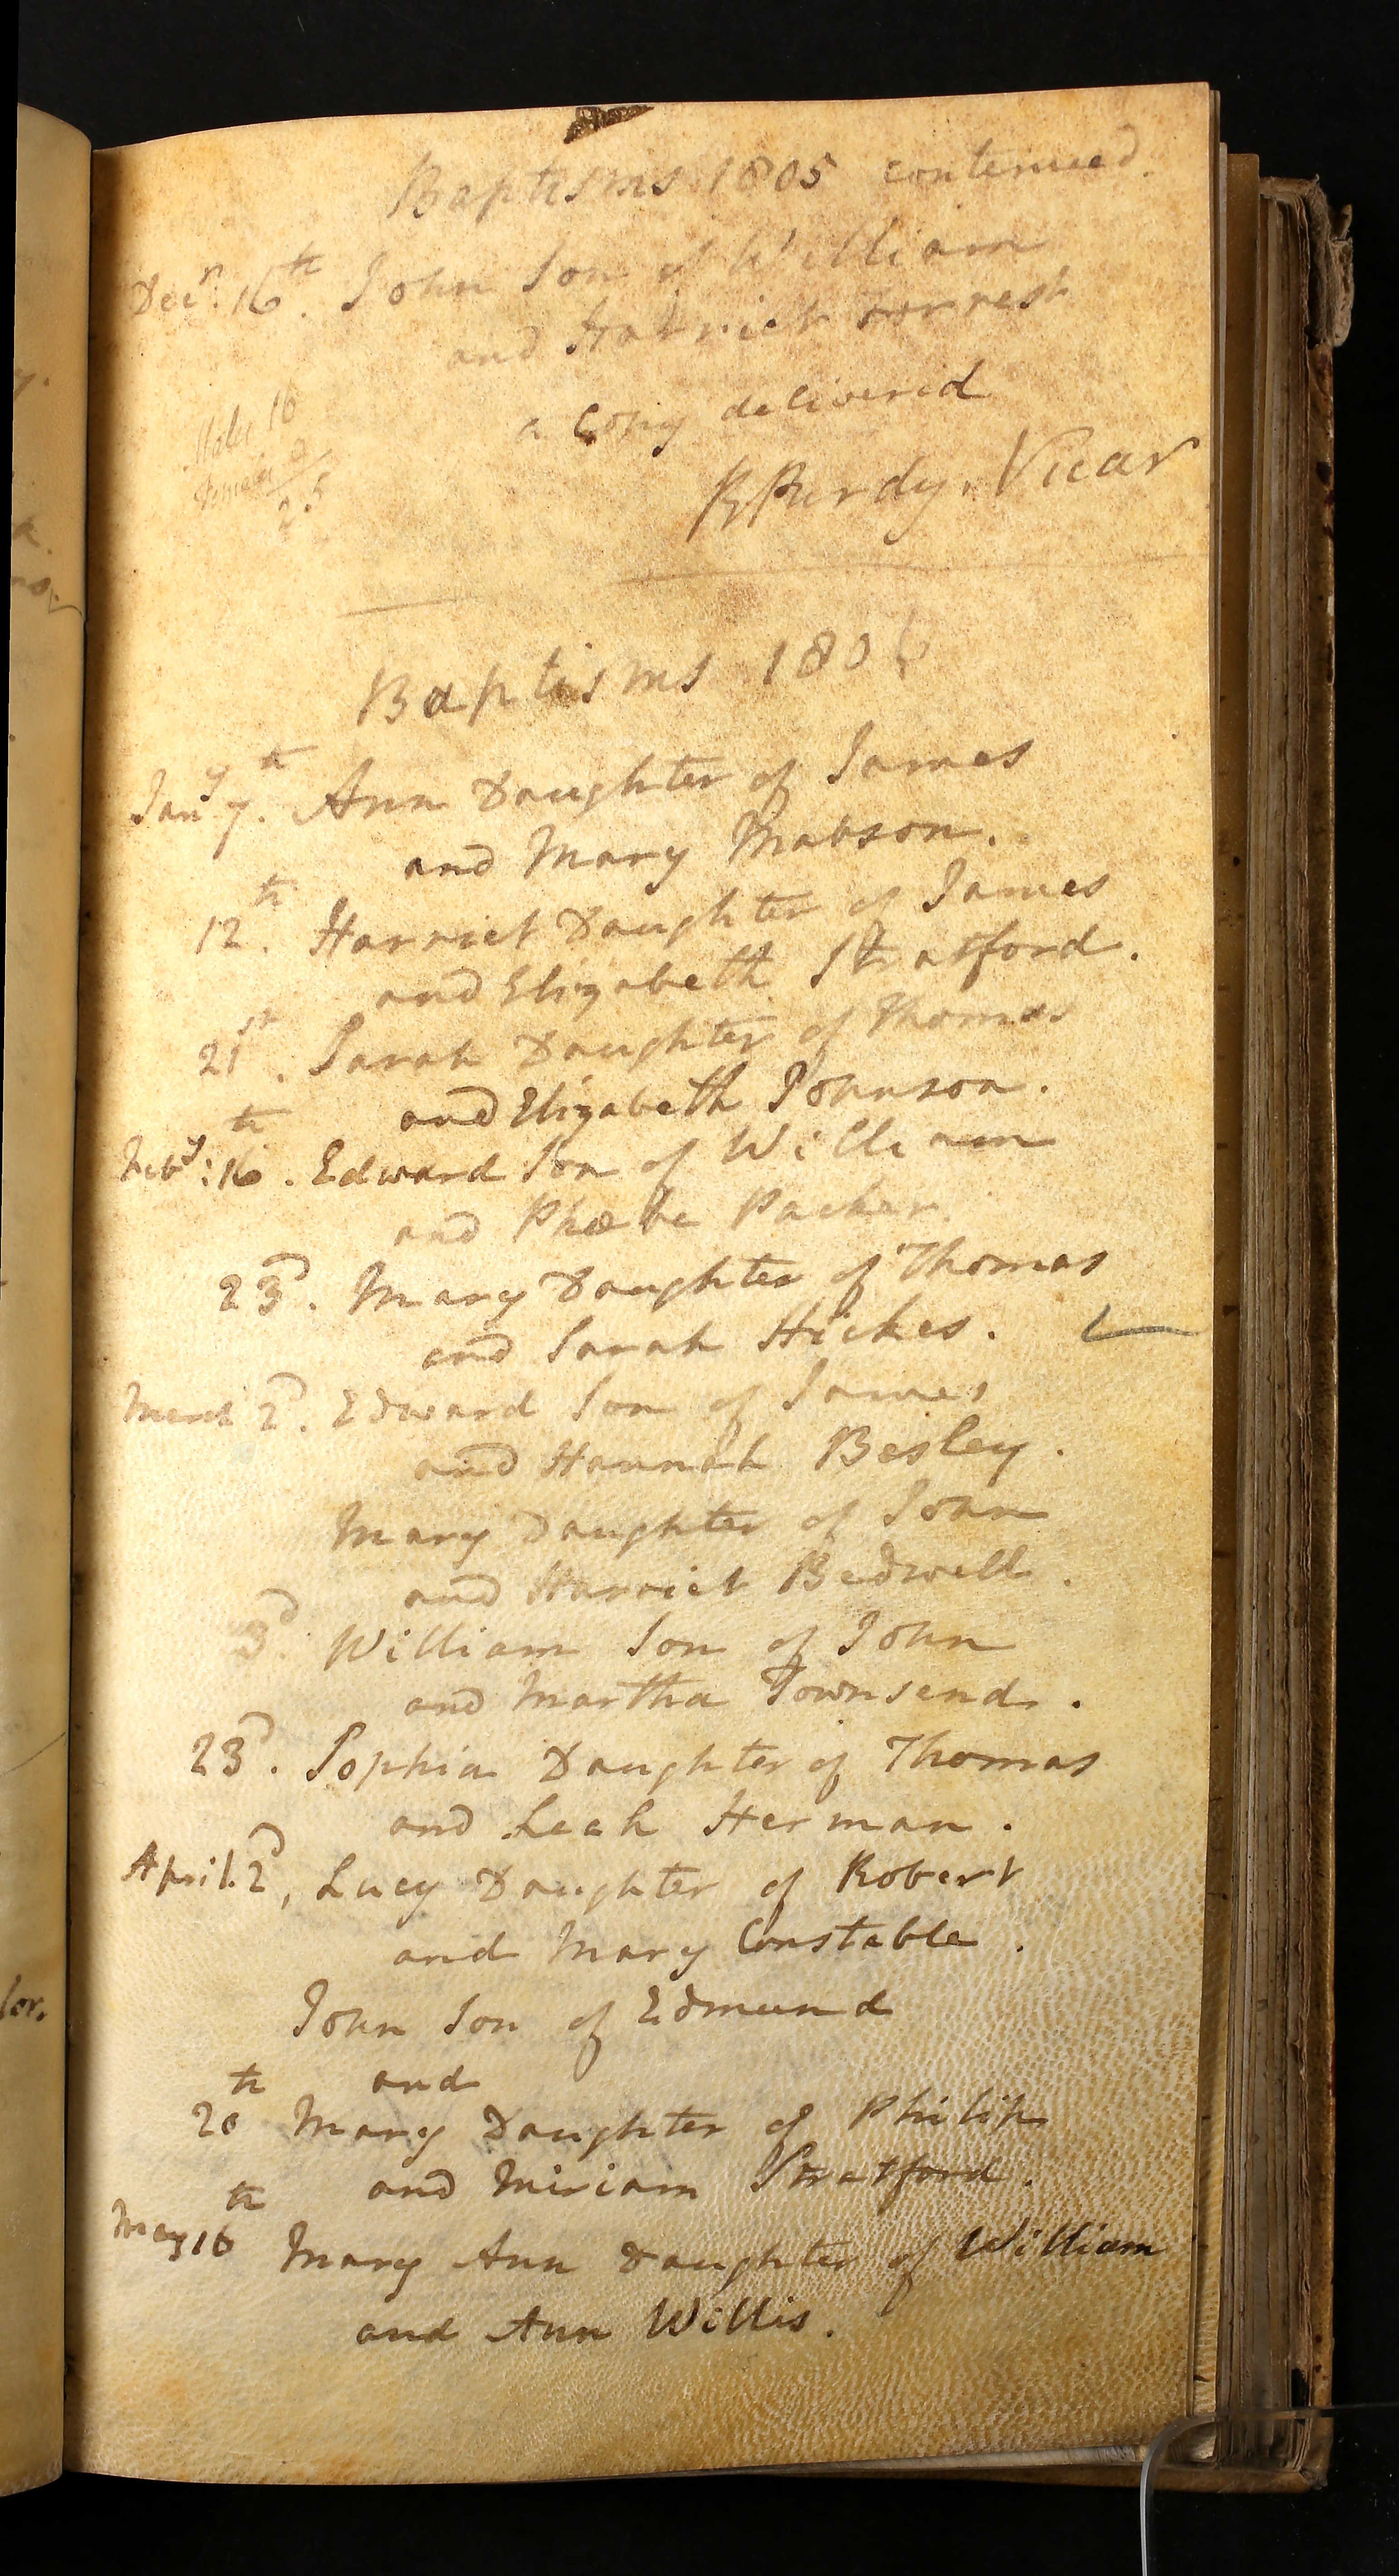 Baptisms 1805 contenued.
Decr: 16th. John Son of William
and Harriet Forrest
a Copy delivered
R Purdy, Vicar
Males 16
Females 9
25
Baptisms 1806
Jany 7th. Ann Daughter of James
and Mary Mabson.
12th. Harriet Daughter of James
and Elizabeth Stratford.
21st. Sarah Daughter of Thomas
and Elizabeth Johnson.
Feby: 16th. Edward Son of William
and Phœbe Packer.
23d. Mary Daughter of Thomas
and Sarah Hickes.
March 2d. Edward Son of James
and Hannah Besley.
Mary Daughter of John
and Harriet Bedwell.
3d. William Son of John
and Martha Townsend.
23d. Sophia Daughter of Thomas
and Leah Herman.
April. 2d, Lucy Daughter of Robert
and Mary Constable.
John Son of Edmund
and
20th Mary Daughter of Philip
and Miriam Stratford.
May 16th Mary Ann Daughter of William
and Ann Willis.